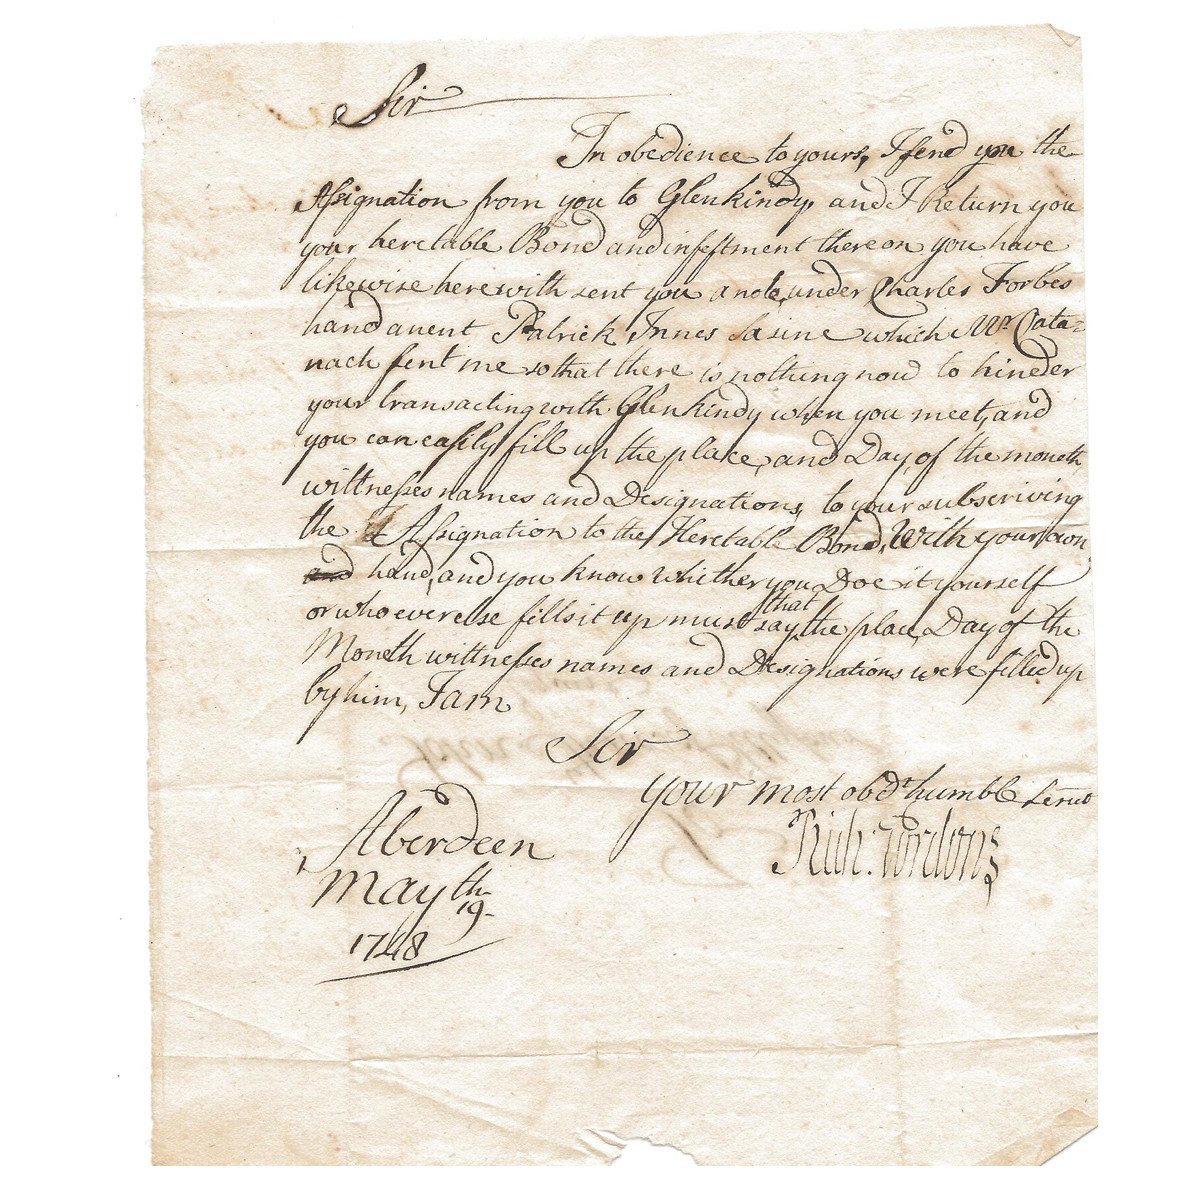 Sir
In obedience to yours, I send you the
Assignation from you to Glenkindy, and I Return you
your heretable Bond and infeftment thereon you have
likewise herewith sent you a note, under Charles Forbes
hand anent Patrick Innes Sasine which Mr Cata=
nach sent me so that there is nothing now to hinder
your transacting with Glenkindy when you meet, and
you can easily fill up the place, and Day, of the moneth
wittnesses names and Designations, to your subscriving
the Assignation to the Heretable Bond, With your own
and hand, and you know whither you Doe it yourself
or who ever else fills it up must say, that the place, Day of the
Moneth wittnesses names and Designations were filled up
by him, I am
Sir
your most obdt humble Servt
Rich: Gordon
Aberdeen
May 19th
1748